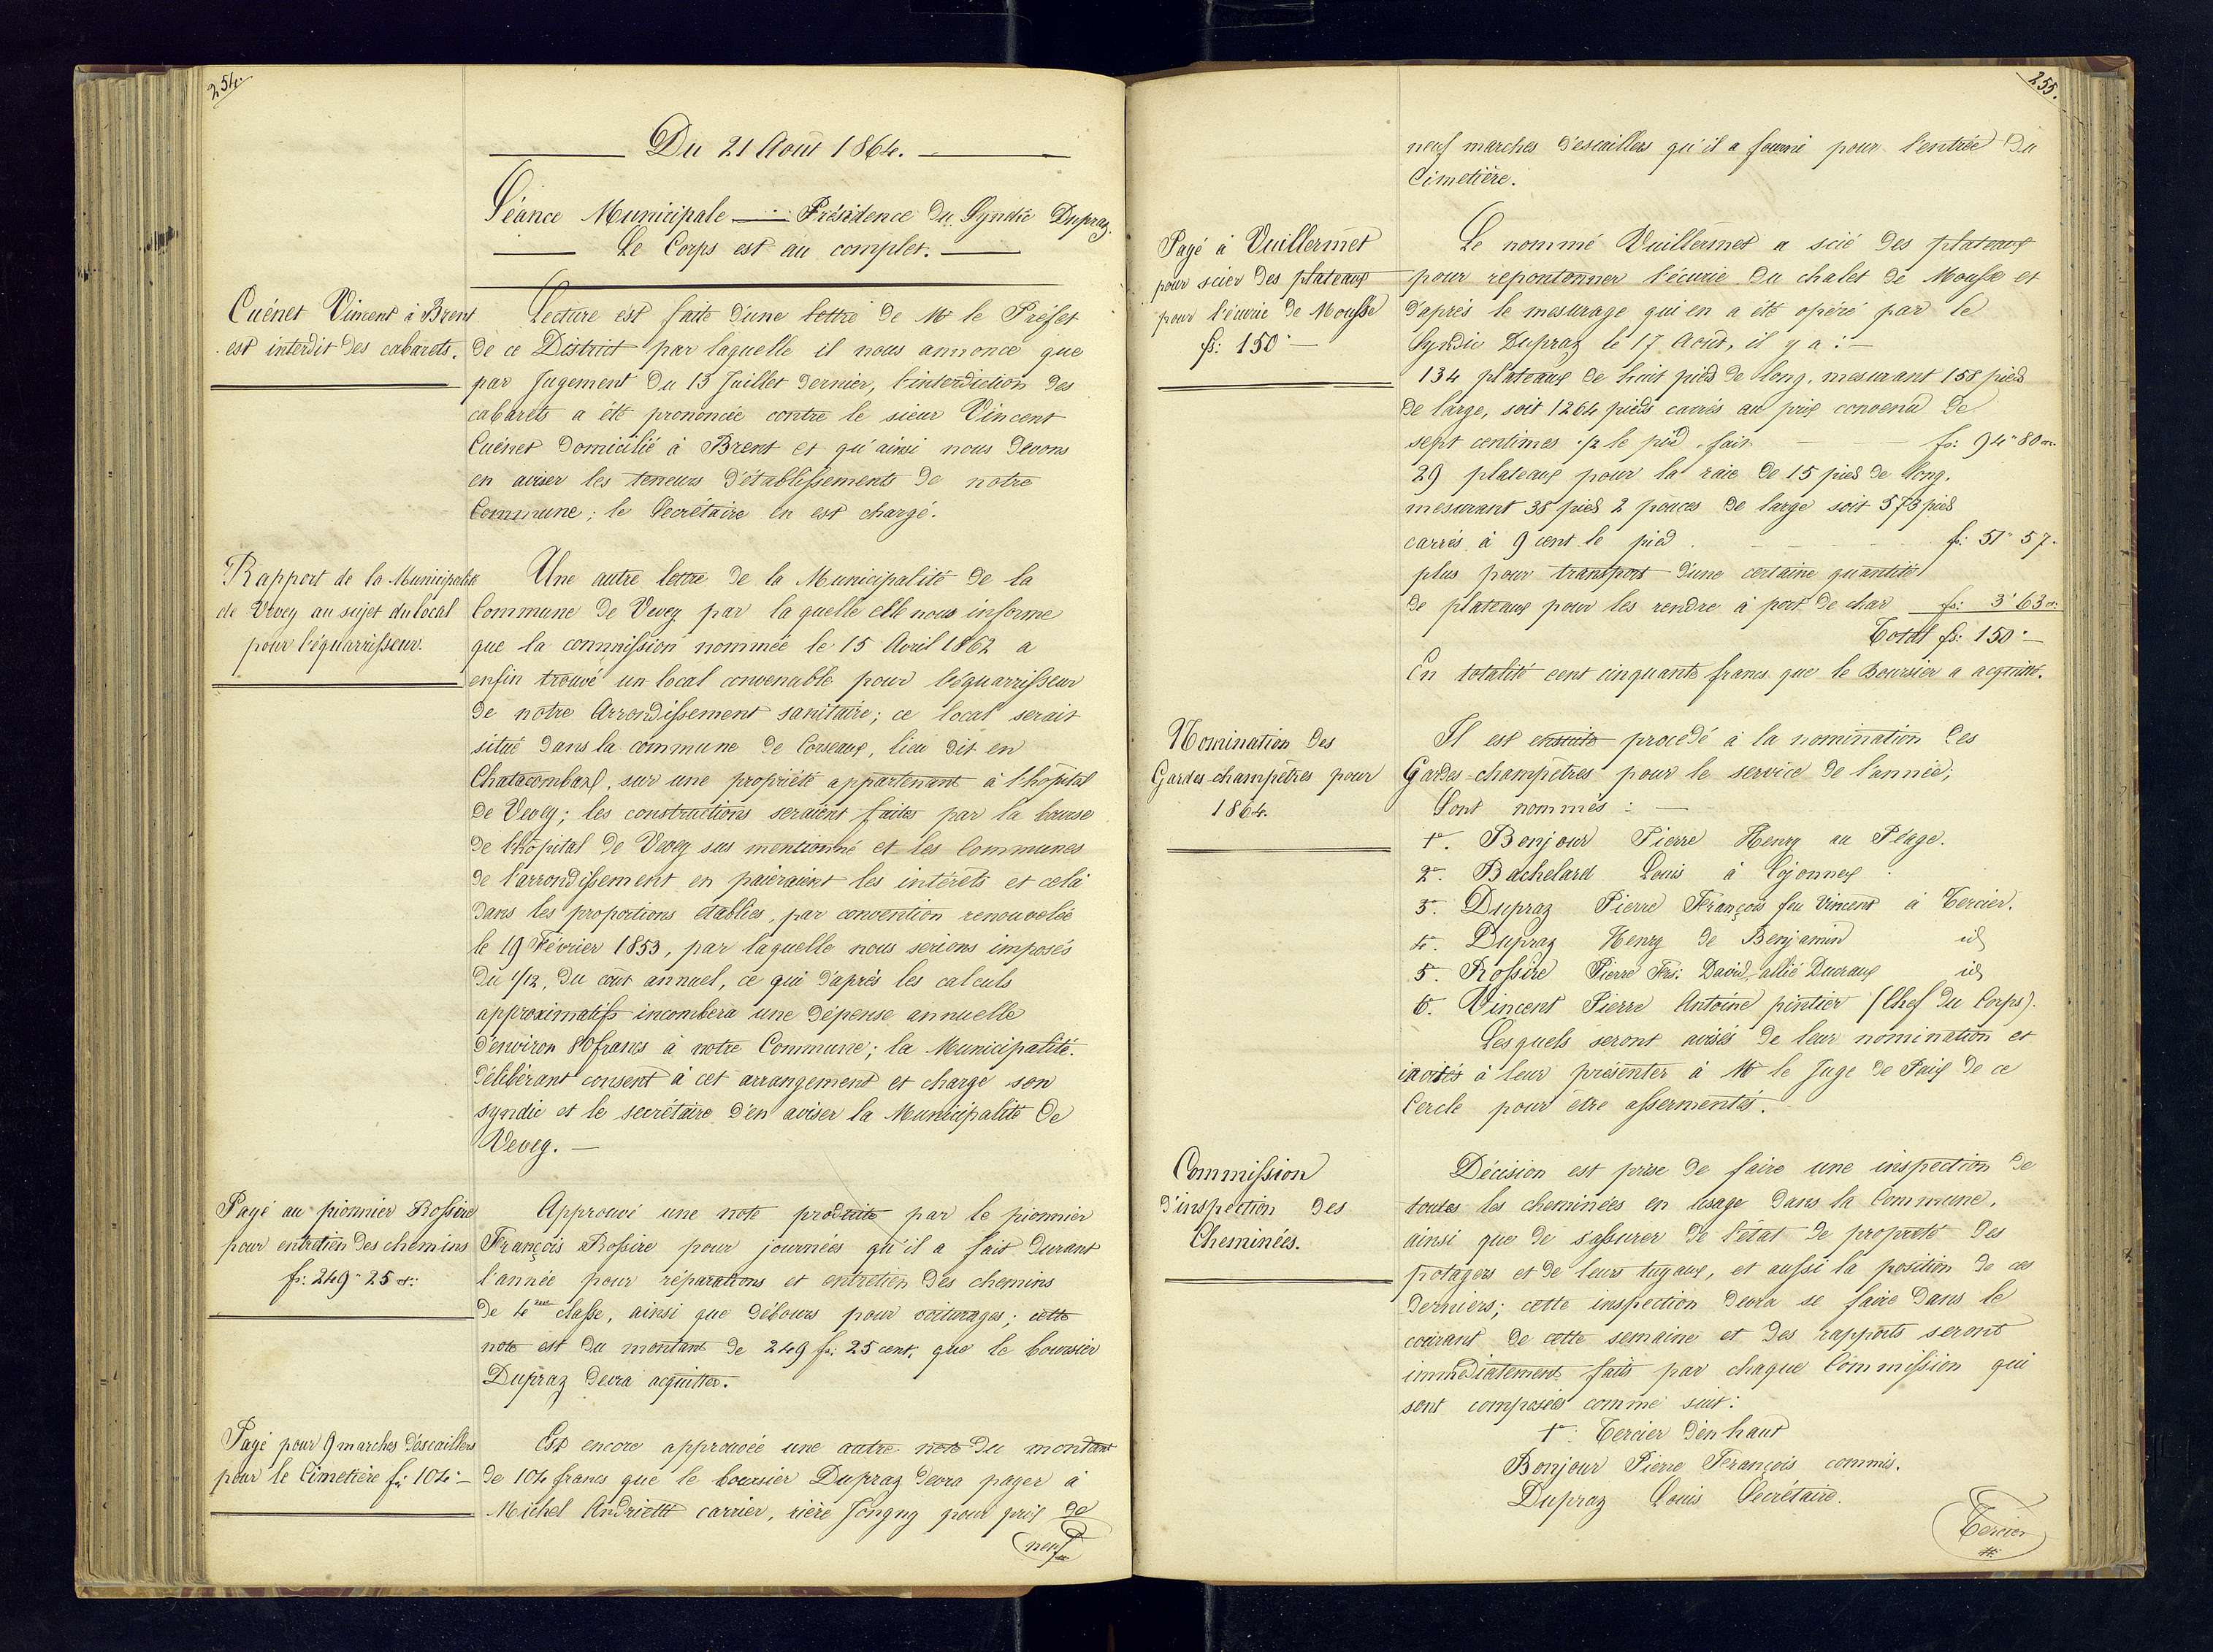 254.
Du 21 Août 1864.
Séance Municipale — Présidence du Syndic Dupraz.
Le Corps est au complet.
Cuénet Vincent à Brent
est interdit des cabarets.
Lecture est faite d'une lettre de Mr le Préfet
de ce District par laquelle il nous annonce que
par Jugement du 13 Juillet dernier, l'interdiction des
cabarets a été prononcée contre le sieur Vincent
Cuénet domicilié à Brent et qu'ainsi nous devons
en aviser les teneurs d'établissements de notre
Commune; le Secrétaire en est chargé.
Rapport de la Municipalité
de Vevey au sujet du local
pour l'équarrisseur.
Une autre lettre de la Municipalité de la
Commune de Vevey par la quelle elle nous informe
que la commission nommée le 15 Avril 1862 a
enfin trouvé un local convenable pour l'équarrisseur
de notre Arrondissement sanitaire; ce local serait
situé dans la commune de Corseaux, lieu dit en
Chatacombaz, sur une propriété appartenant à l'hôpital
de Vevey; les constructions seraient faites par la bourse
de l'hôpital de Vevey sus mentionné et les Communes
de l'arrondissement en paieraient les intérêts et cela
dans les proportions établies, par convention renouvelée
le 19 Février 1853, par laquelle nous serions imposés
du 1/12, du coût annuel, ce qui d'après les calculs
approximatifs incombera une dépense annuelle
d'environ 80 francs à notre Commune; la Municipalité
délibérant consent à cet arrangement et charge son
syndic et le secrétaire d'en aviser la Municipalité de
Vevey. —
Payé au pionnier Rossire
pour entretien des chemins
fr: 249" 25 ct:
Approuvé une note produite par le pionnier
François Rossire pour journées qu'il a fait durant
l'année pour réparations et entretien des chemins
de 4me classe, ainsi que débours pour voiturages; cette
note est du montant de 249 fr: 25 cent. que le boursier
Dupraz devra acquitter.
Payé pour 9 marches d'escaillers
pour le Cimetière fr: 104" —
Est encore approuvée une autre note du montant
de 104 francs que le boursier Dupraz devra payer à
Michel Andrietti carrier, rière Jongny pour prix de
neuf
255.
neuf marches d'escaillers qu'il a fourni pour l'entrée du
Cimetière.
Payé à Vuillermet
pour scier des plateaux
pour l'écurie de Mousse
fr: 150" —
Le nommé Vuillermet a scié des plateaux
pour repontonner l'écurie du chalet de Mousse et
d'après le mesurage qui en a été opéré par le
Syndic Dupraz le 17 Août, il y a : —
134 plateaux de huit pieds de long, mesurant 158 pieds
de large, soit 1264 pieds carrés au prix convenu de
sept centimes 1/2 le pied, fait — fr: 94" 80 ct.
29 plateaux pour la raie de 15 pieds de long,
mesurant 38 pieds 2 pouces de large soit 573 pieds
carrés à 9 cent le pied — fr: 51" 57.
plus pour transport d'une certaine quantité
de plateaux pour les rendre à port de char fr: 3" 63 ct:
Total fr: 150" —
En totalité cent cinquante francs que le Boursier a acquitté.
Nomination des
Gardes champêtres pour
1864.
Il est ensuite procédé à la nomination des
Gardes-champêtres pour le service de l'année;
Sont nommés : —
1°. Bonjour Pierre Henry au Péage.
2°. Bachelard Louis à Cojonnex
3°. Dupraz Pierre François feu Vincent à Tercier.
4°. Dupraz Henry de Benjamin id
5°. Rossire Pierre Frs: David, allié Ducraux id
6°. Vincent Pierre Antoine pintier (Chef du Corps).
Lesquels seront avisés de leur nomination et
invités à leur présenter à Mr le Juge de Paix de ce
Cercle pour etre assermentés.
Commission
d'inspection des
Cheminées.
Décision est prise de faire une inspection de
toutes les cheminées en usage dans la Commune,
ainsi que de s'assurer de l'état de propreté des
potagers et de leurs tuyaux, et aussi la position de ces
derniers; cette inspection devra se faire dans le
courant de cette semaine et des rapports seront
immédiatement faits par chaque Commission qui
sont composées comme suit:
1°. Tercier d'en haut
Bonjour Pierre François commis.
Dupraz Louis Secrétaire.
Tercier